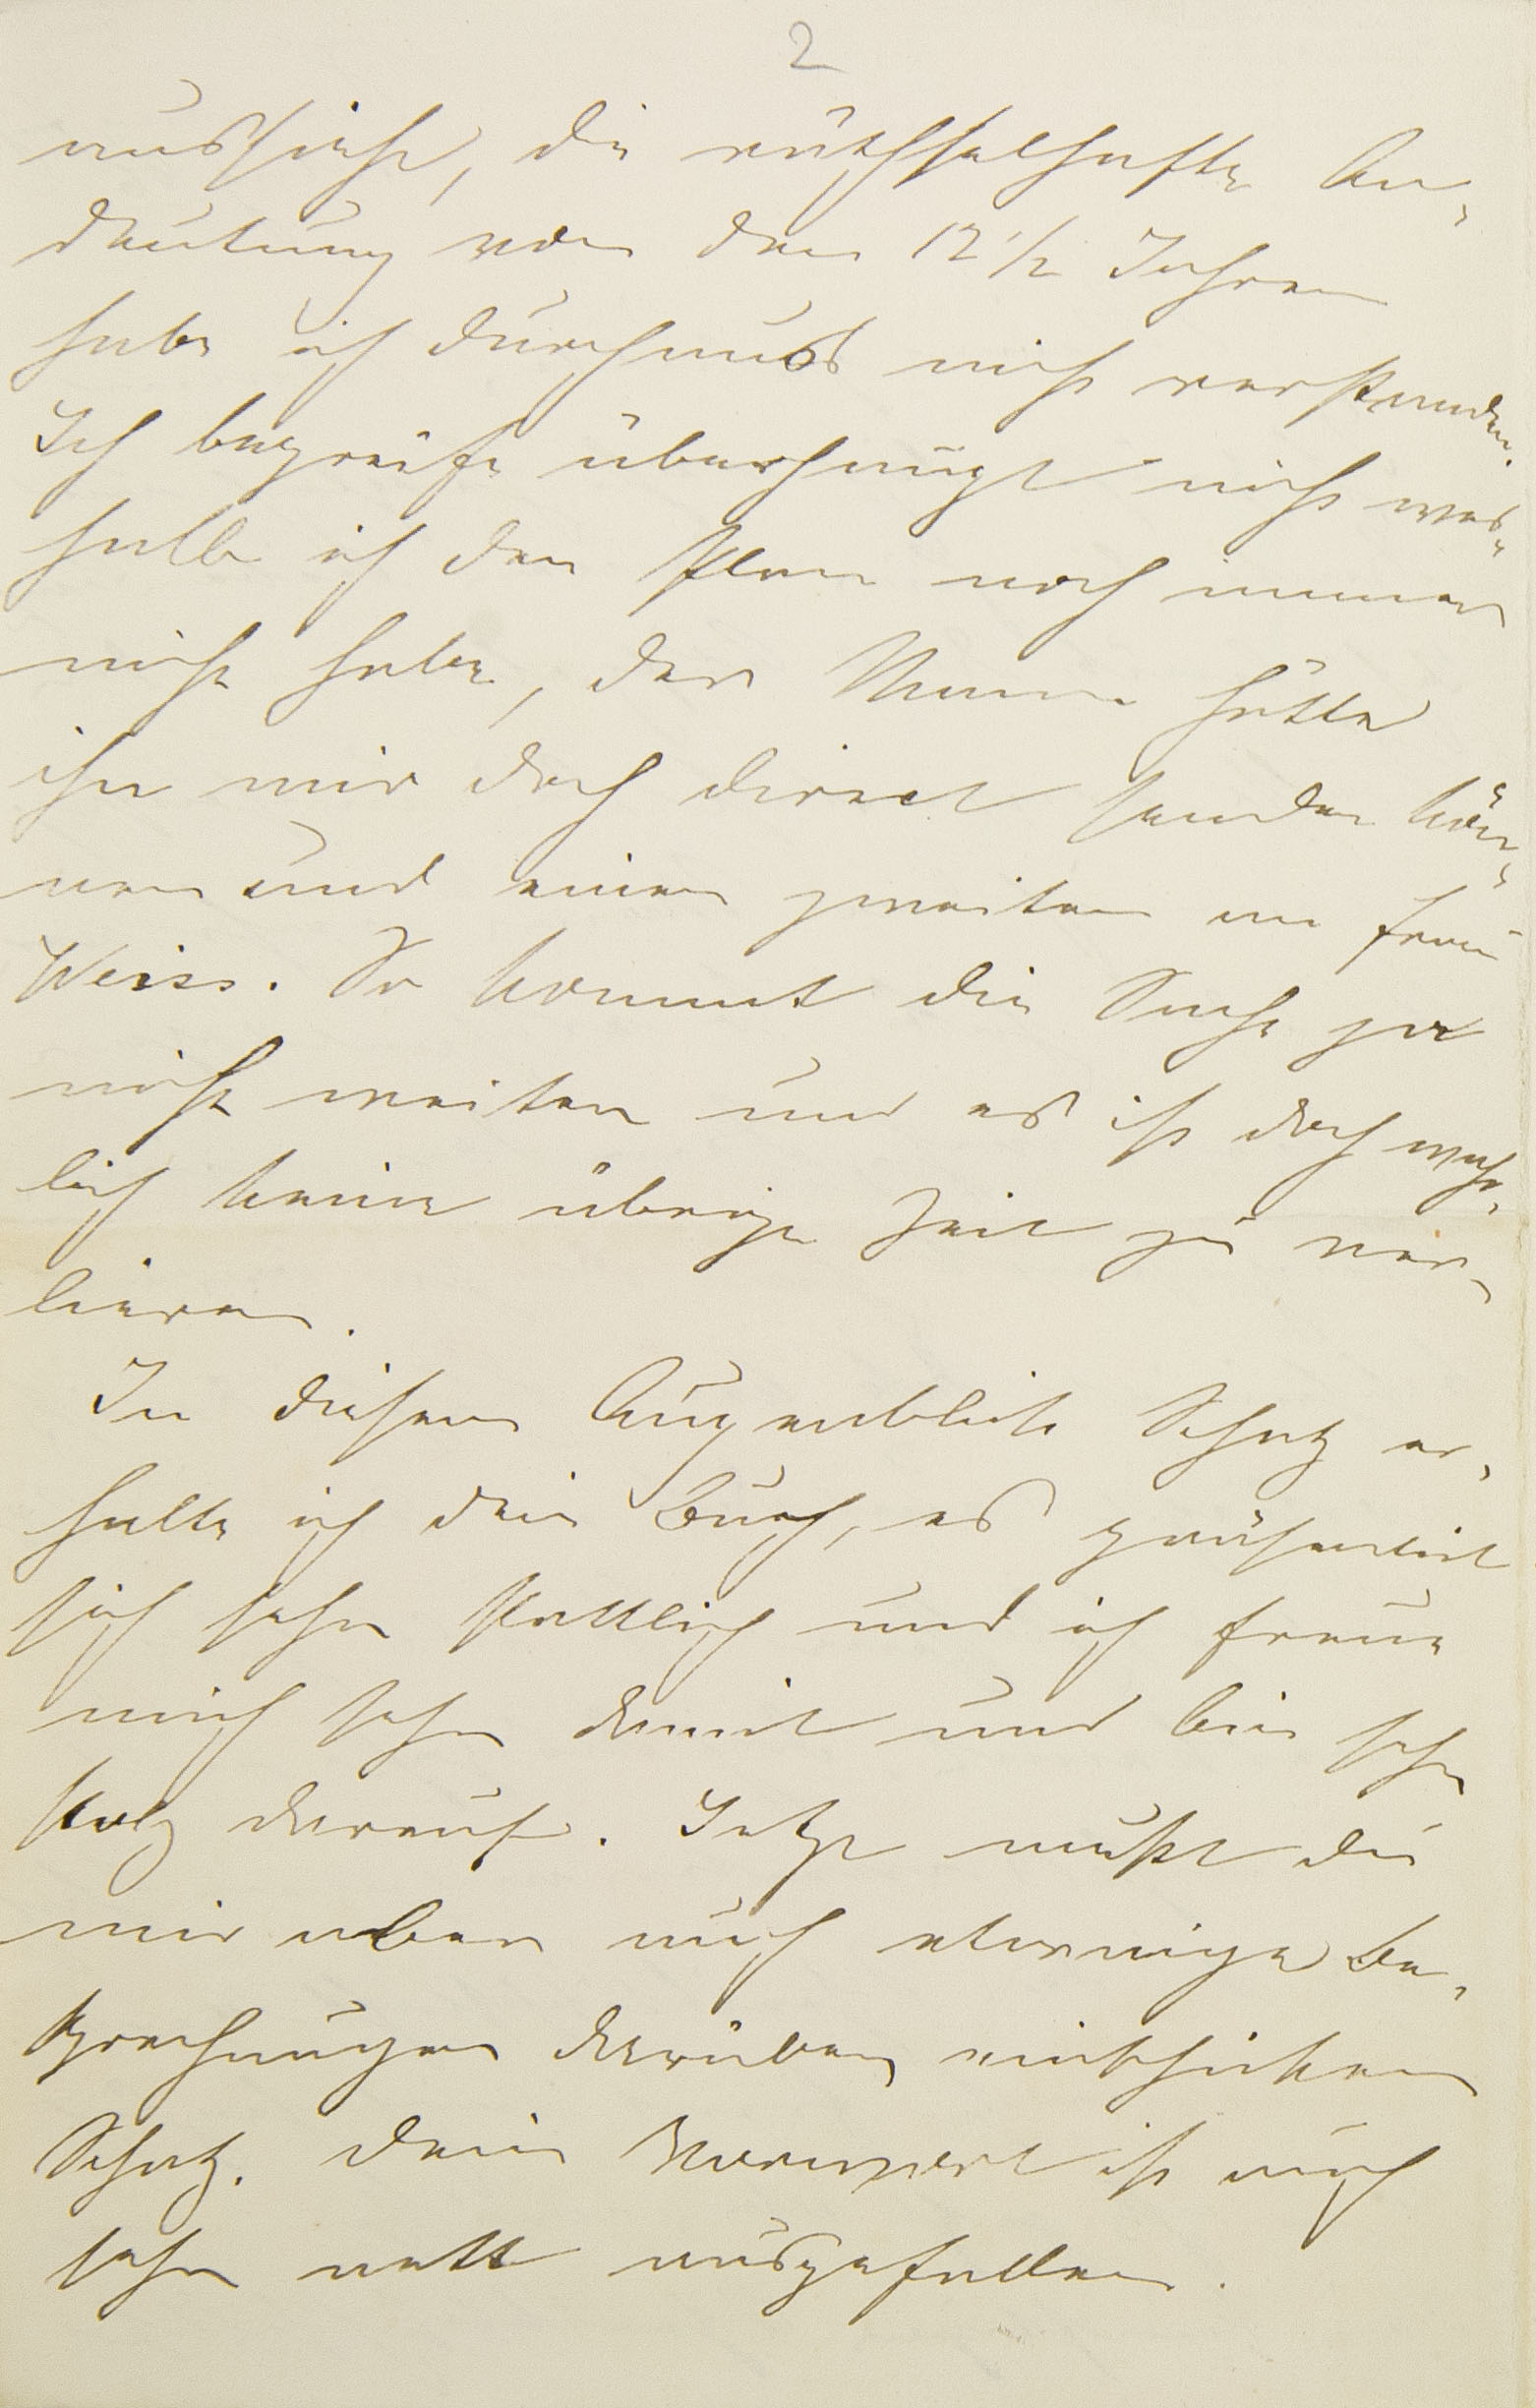 2
aussieht, die räthselhafte An-
deutung von den 12 1/2 Jahren
habe ich durchaus nicht verstanden.
Ich begreife überhaupt nicht wes-
halb ich den Plan noch immer
nicht habe, der Mann hätte
ihn mir doch direct senden kön-
nen und einen zweiten an Frau
Weiss. So kommt die Sache ja
nicht weiter und es ist doch wahr-
lich keine übrige Zeit zu ver-
lieren.
In diesem Augenblicke Schatz er-
halte ich dein Buch, es präsentirt
sich sehr stattlich und ich freue
mich sehr damit und bin sehr
stolz darauf. Jetzt mußt du
mir aber auch etwaige Be-
sprechungen darüber mitschicken
Schatz. Dein Vorwort ist auch
sehr nett ausgefallen.